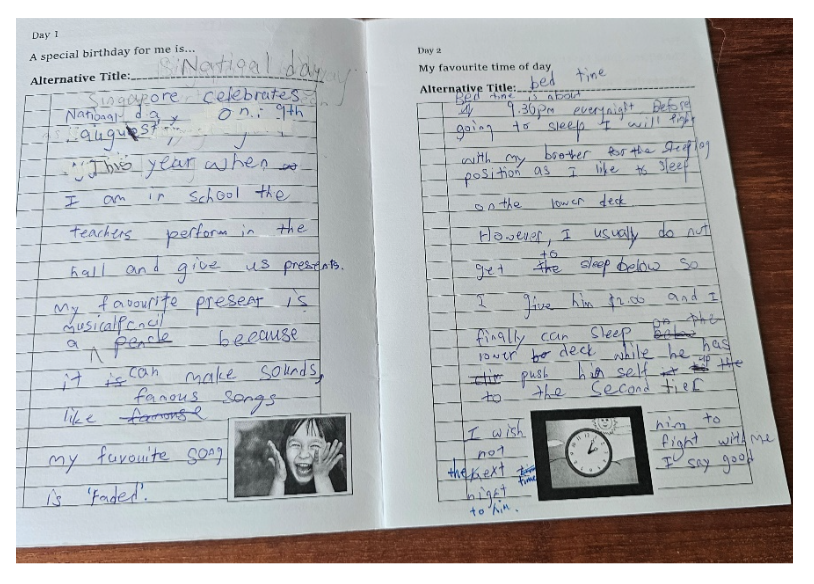 Day 1
A special birthday for me is...
Alternative Title: National day
Singapore celebrates
National day on: 9th
august,
This year when
I am in school the
teachers perform in the
hall and give us presents.
My favourite present is
musical pencil
a pencle because
it is can make sounds,
famous songs
like famouse
my favouite song
is 'faded'.
Day 2
My favourite time of day
Alternative Title: bed time
Bed time is about
9.30pm everynight Before
going to sleep I will fight
with my brother for the sleeping
position as I like to sleep
on the lower deck
However, I usually do not
to
get the sleep below so
I give him $2.00 and I
finally can sleep below on the
lower deck while he has
push him self up
to the Second tier
I wish him to
not fight with me
the next time I say good
night
to him.